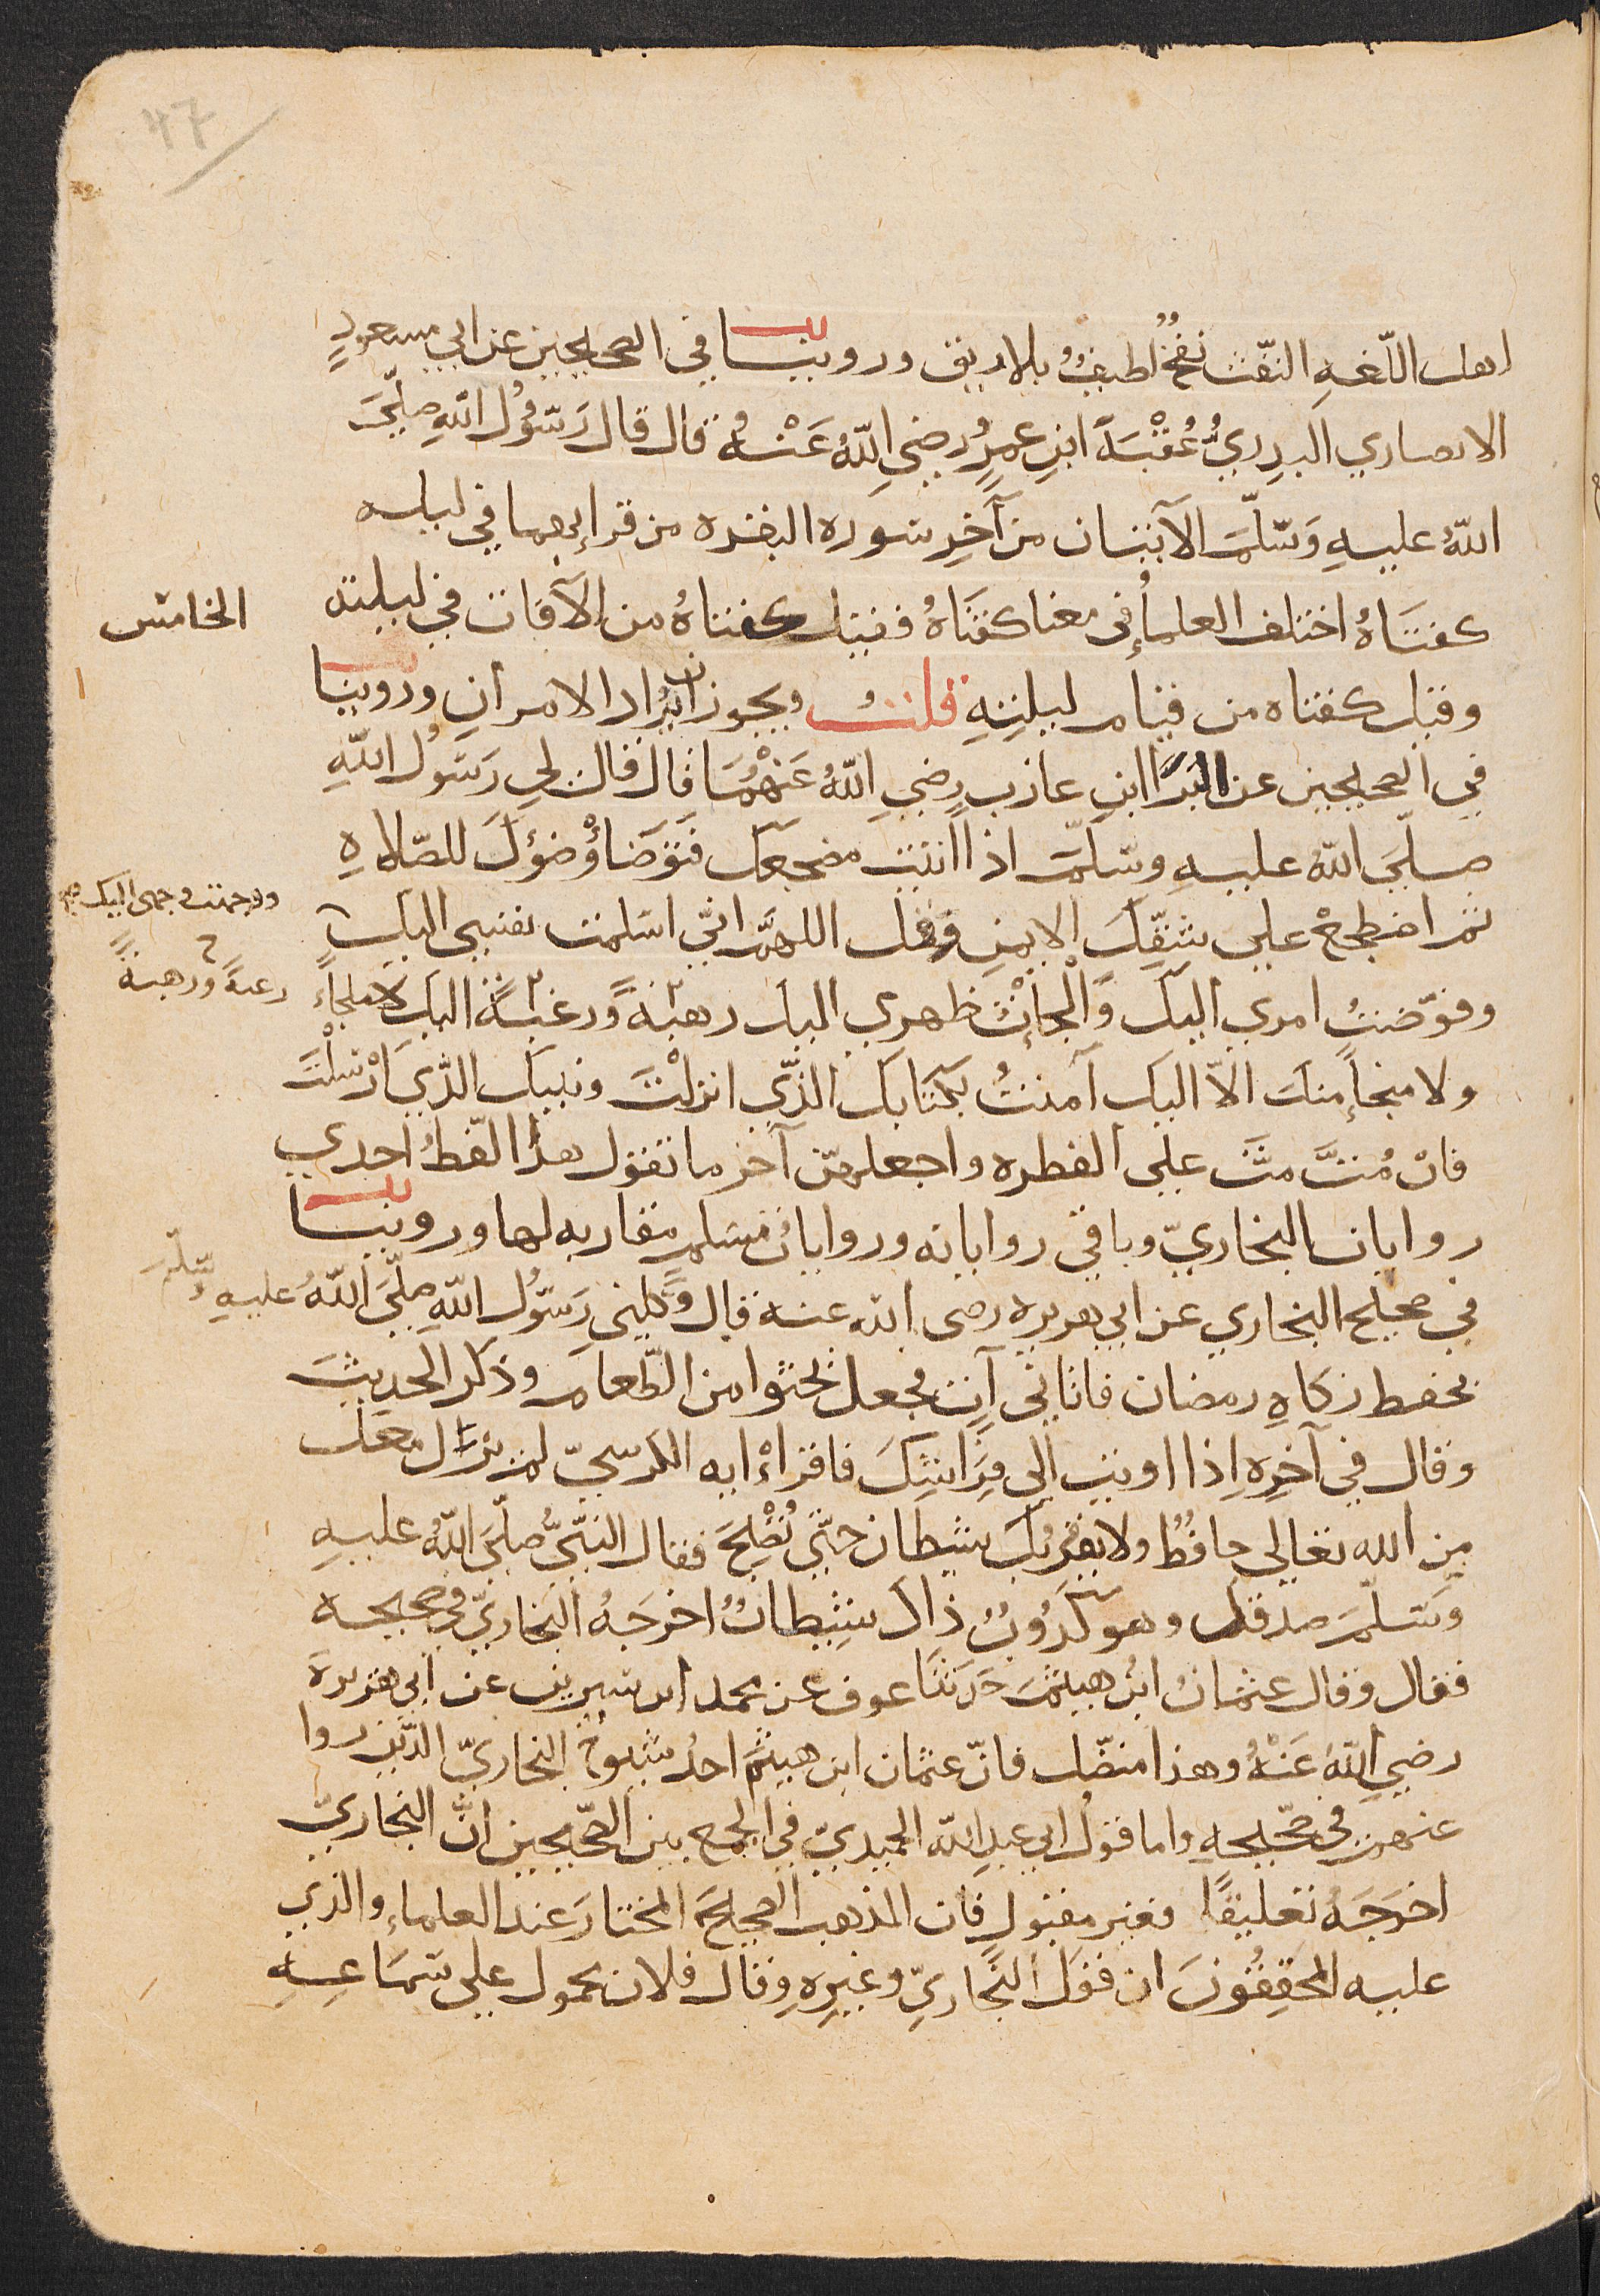 47
اهل اللّغهِ النّفث نفخٌ لطيفٌ بلا ريق وروينا في الصحيحين عن ابي مسعودٍ
الانصاري البدريُّ عُقْبَةَ ابنِ عمرٍو رضي اللهُ عَنْهُ قال قال رَسُوُل اللهِ صلّىَ
اللهُ عليهِ وَسَلّمَ الآيتان من آخِرِ سورة البقره من قرا بهما في ليله
كفتَاهُ اختلف العلماءُ في معنا كفتَاهُ فقيل كفتاهُ من الآفات في ليلته
الخامس
وقيل كفتاه من قيام ليلتِهِ قلتُ ويجوز ان يُراد الامران وروينا
في الصحيحين عن البَرَا ابنِ عازبٍ رضي اللهُ عَنْهُمَا قال قال لي رَسُول اللهِ
صلّىَ اللهُ عليهِ وسَلّمَ اذا اتيت مضجعكَ فَتَوَضَأْ وُضوُكَ للصّلاهِ
ثم اضطجعْ علي شقِّكَ الايمنِ وقل اللهمَّ انّي اسلمت نفسي اليك
ووجهت وجهى اليك صح
وفوّضتُ امري اليكَ وَالْجأتُ ظهري اليك رهبةً ورغبةً اليك لاملجاءً
رغبةً ورهبةً
ولا منجأ منكَ الاّ اليك آمنتُ بكتَابكَ الذّي انزلْتَ ونبيك الذّي اَرْسَلْتَ
فانْ مُتَّ متَّ علي الفطره واجعلهنّ آخر ما تقول هذا لفظُ احدي
روايات البخاريّ وباقي رواياته وروايات مسلمٍ مقاربه لها وروينا
في صحيح البخاري عن ابي هريره رضي الله عنه قال وَكلني رَسُوُل اللهِ صلّىَ اللهُ عليهِ وَسَلّمَ
بحفظ زكاهِ رمضان فاتاني آتٍ فجعل يحثوا من الطّعام وذكر الحديثَ
وقال في آخِرِهِ اِذا اويت الي فِرَاشِكَ فاقراءْ ايه الكرسيّ لن يزال معك
من الله تعالي حافظٌ ولايقربُكَ شيطان حتّي تُصْبِحَ فقال النبّيُ صلّىَ اللهُ عليهِ
وَسَلّمَ صدقك وهو كذُوبٌ ذاك شيطانٌ اخرجَهُ البخاريّ في صحيحه
فقال وقال عثمان ابنُ هيثم حَدَثنَا عوف عن محمد ابن سيرين عن ابي هريرة
رضي اللهُ عَنْهُ وهذا متصّل فانّ عثمان ابن هيثم احدُ شيوخ البخاريّ الذّين روا
عنهم في صَحيحهِ واما قول ابي عبدِ اللهِ الحميديّ في الجمع بين الصّحيحين انَّ البخاريّ
اخرَجَهُ تعليقًا فغير مقبول فان المذهب الصحيحَ المختارَ عند العلماء والذي
عليه المحقِقُونَ ان قولَ البخاريّ وغيرِهِ وقال فلان محمول علي سَمَاعِهِ